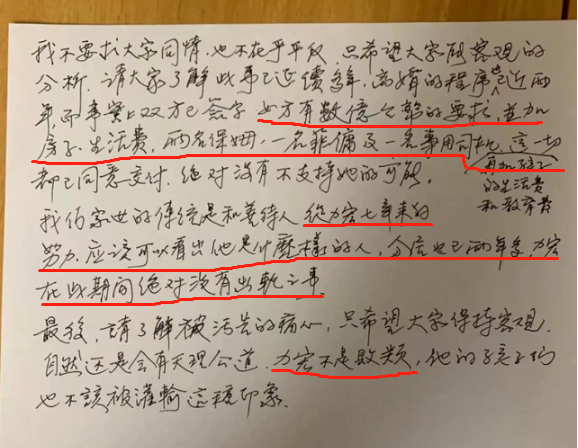 我不要求大家同情，也不在乎平反，只希望大家能客观的
分析，请大家了解此事已延續多年，离婚的程序也已近两
年，而事實上双方已签字，女方有数億金額的要求，並加
房子、生活費，两名保姆，一名菲傭及一名專用司机，這一切
再加孩子
都已同意交付，绝对没有不支持她的可能，
的生活费
和教育費
我们家世的傳統是和善待人，從力宏七年来的
努力，应該可以看出他是什麽樣的人，分居也已两年多，力宏
在此期间绝对没有出軌之事
最後，請了解被污告的痛心，只希望大家保持客观，
自然还是会有天理公道，力宏不是败類，他的孩子们
也不該被灌輸這種印象。